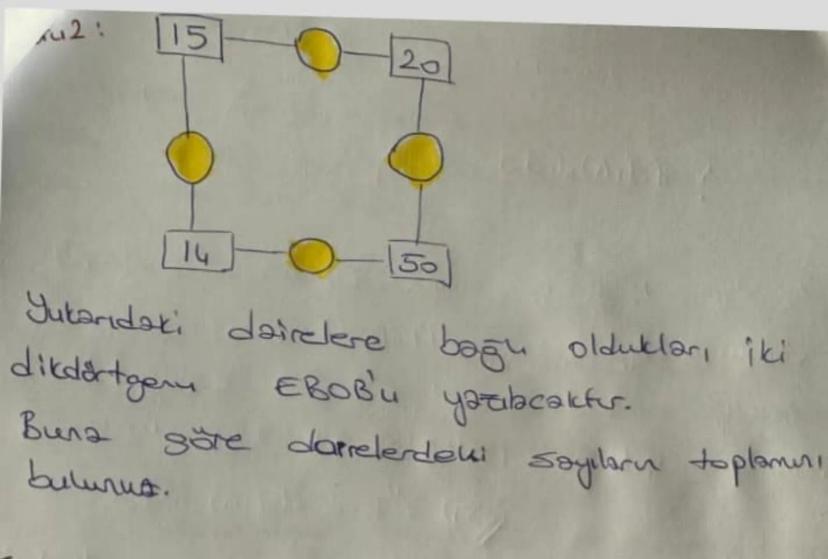 15
20
14
50
Yukarıdaki dairelere bağlı oldukları iki
dikdörtgenin EBOB'u yazılacaktır.
Buna göre dairelerdeki sayıların toplamını
bulunuz.